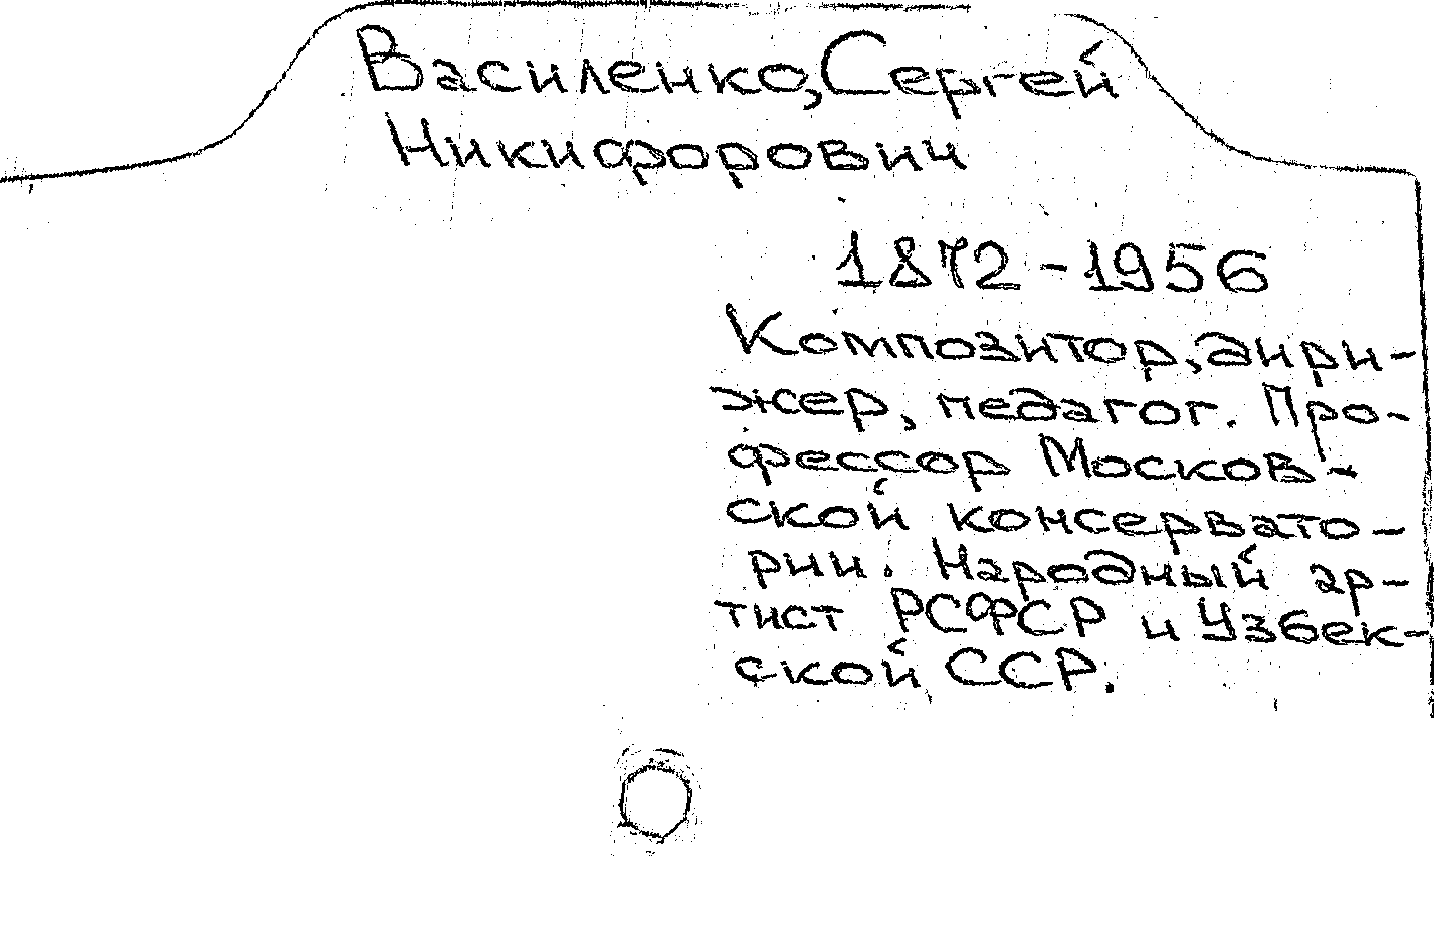 Василенко, Сергей
Никифорович
1872-1956
Композитор, дири-
жер, педагог. Про-
фессор Москов-
ской консервато-
рии. Народный ар-
тист РСФСР и Узбек-
ской ССР.